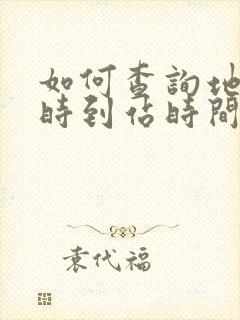 如何查詢地
時到佔時間
袁代福